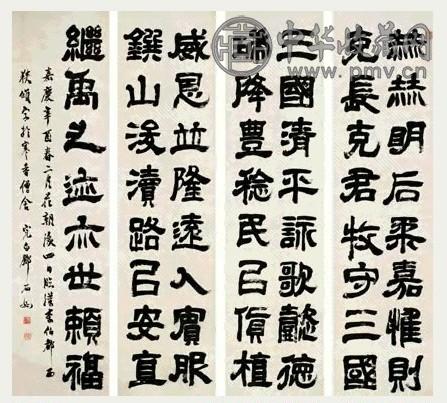 赫赫明后柔嘉惟則
克長克君牧守三國
三國清平詠歌懿德
瑞降豐稔民㠯貨植
威恩並隆遠人賓服
鐉山浚瀆路㠯安直
繼禹之迹亦世賴福
嘉慶辛酉春二月花朝後四日臨漢李伯都西
狹頌字於寒香僧舍 完白鄧石如
中华收藏网
www.pmv.cn